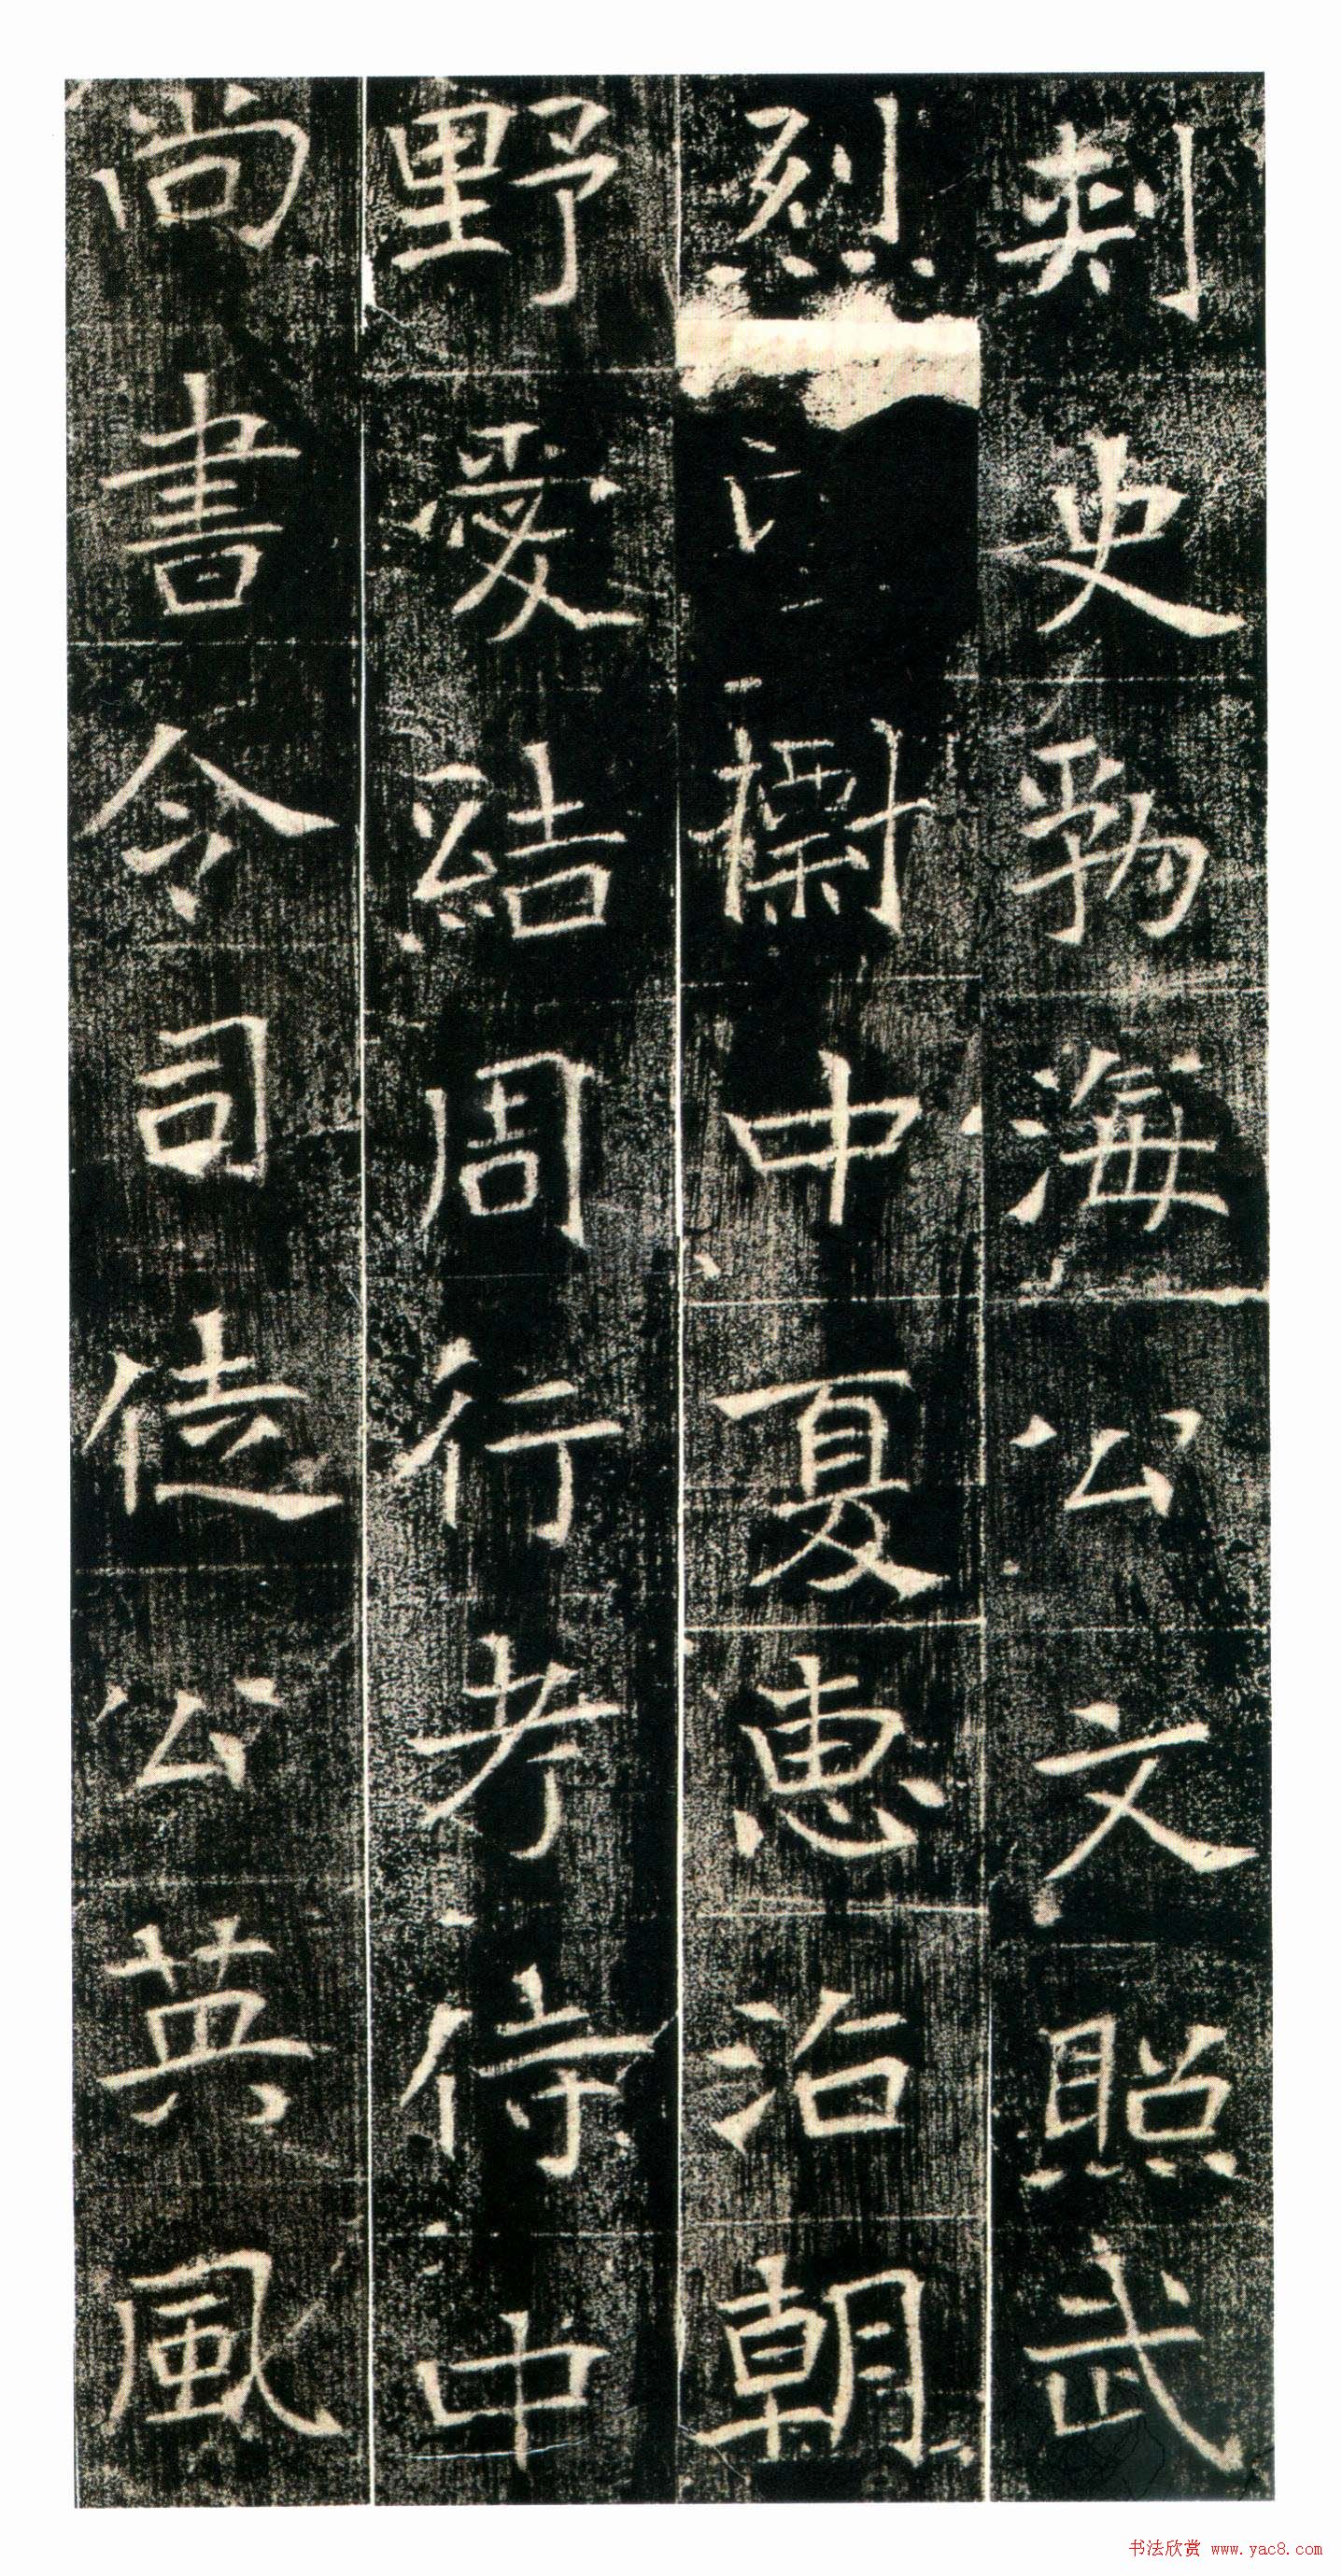 刺史勃海公文照武
烈中夏惠洽朝
野愛結周行考侍中
尚書令司徒公英風
书法欣赏 www.yac8.com